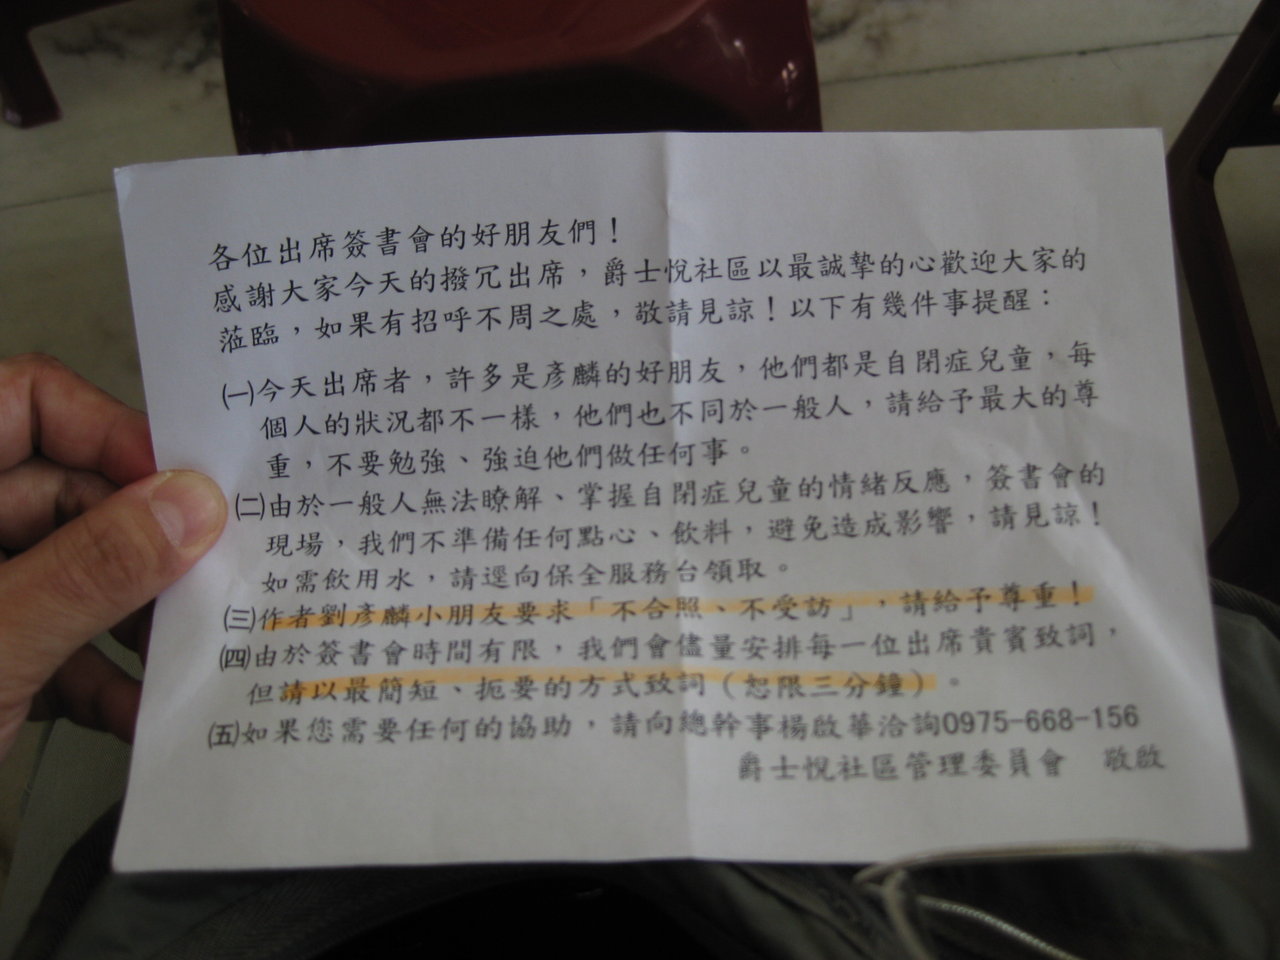 各位出席簽書會的好朋友們！
感謝大家今天的撥冗出席，爵士悅社區以最誠摯的心歡迎大家的
蒞臨，如果有招呼不周之處，敬請見諒！以下有幾件事提醒：
㈠今天出席者，許多是彥麟的好朋友，他們都是自閉症兒童，每
個人的狀況都不一樣，他們也不同於一般人，請給予最大的尊
重，不要勉強、強迫他們做任何事。
㈡由於一般人無法瞭解、掌握自閉症兒童的情緒反應，簽書會的
現場，我們不準備任何點心、飲料，避免造成影響，請見諒！
如需飲用水，請逕向保全服務台領取。
㈢作者劉彥麟小朋友要求「不合照、不受訪」，請給予尊重！
㈣由於簽書會時間有限，我們會儘量安排每一位出席貴賓致詞，
但請以最簡短、扼要的方式致詞（恕限三分鐘）。
㈤如果您需要任何的協助，請向總幹事楊啟華洽詢0975-668-156
爵士悅社區管理委員會　敬啟